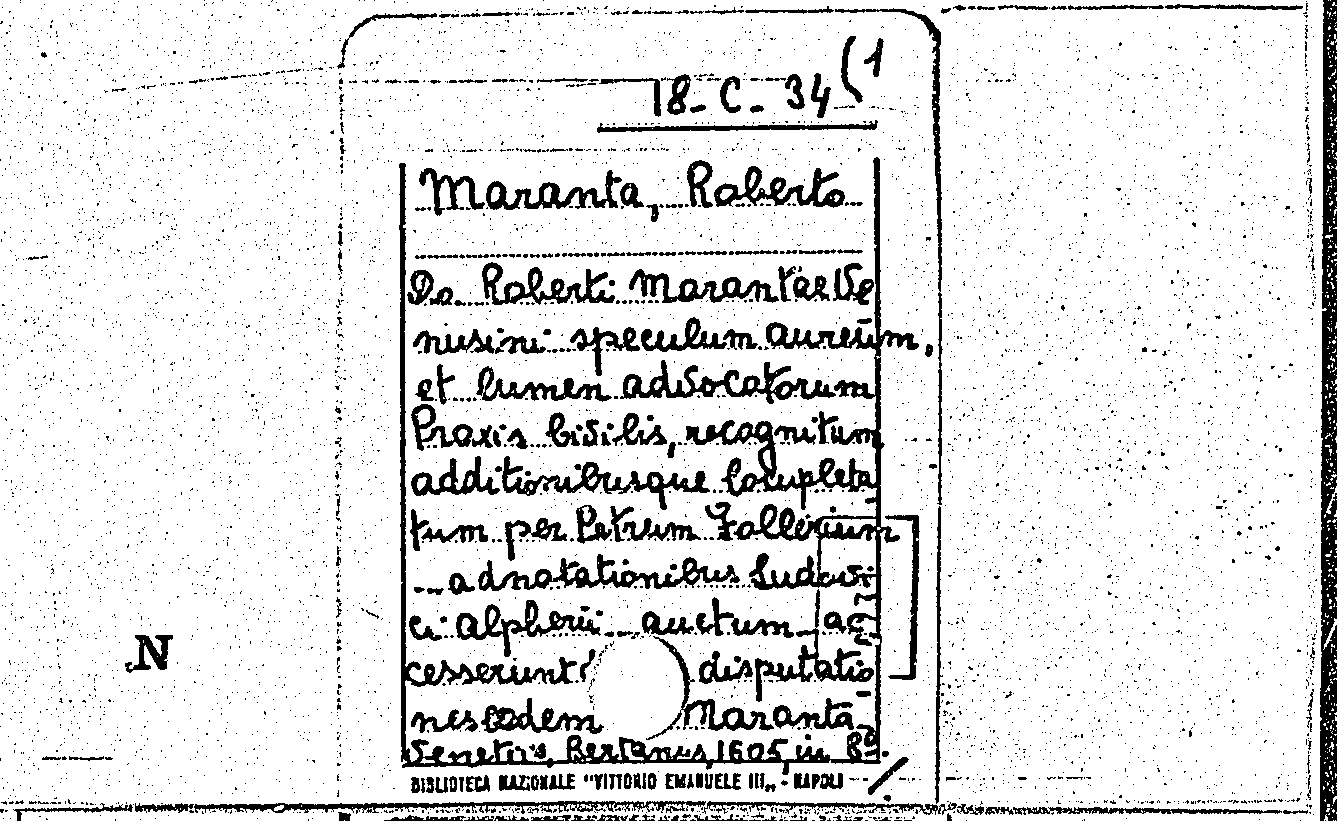 18-C-34(1
Maranta, Roberto
Do. Roberti Marantae Ve
nusini speculum aureum,
et lumen advocatorum
Praxis bivilis, recognitum
additionibusque locupleta-
tum per Petrum Follerium
... adnotationibus Ludovi-
ci Alpherii ... auctum ac-
cesserunt disputatio-
nes eodem Maranta.
Venetiis, Bertanus, 1605, in 8º.
BIBLIOTECA NAZIONALE "VITTORIO EMANUELE III„ - NAPOLI
N